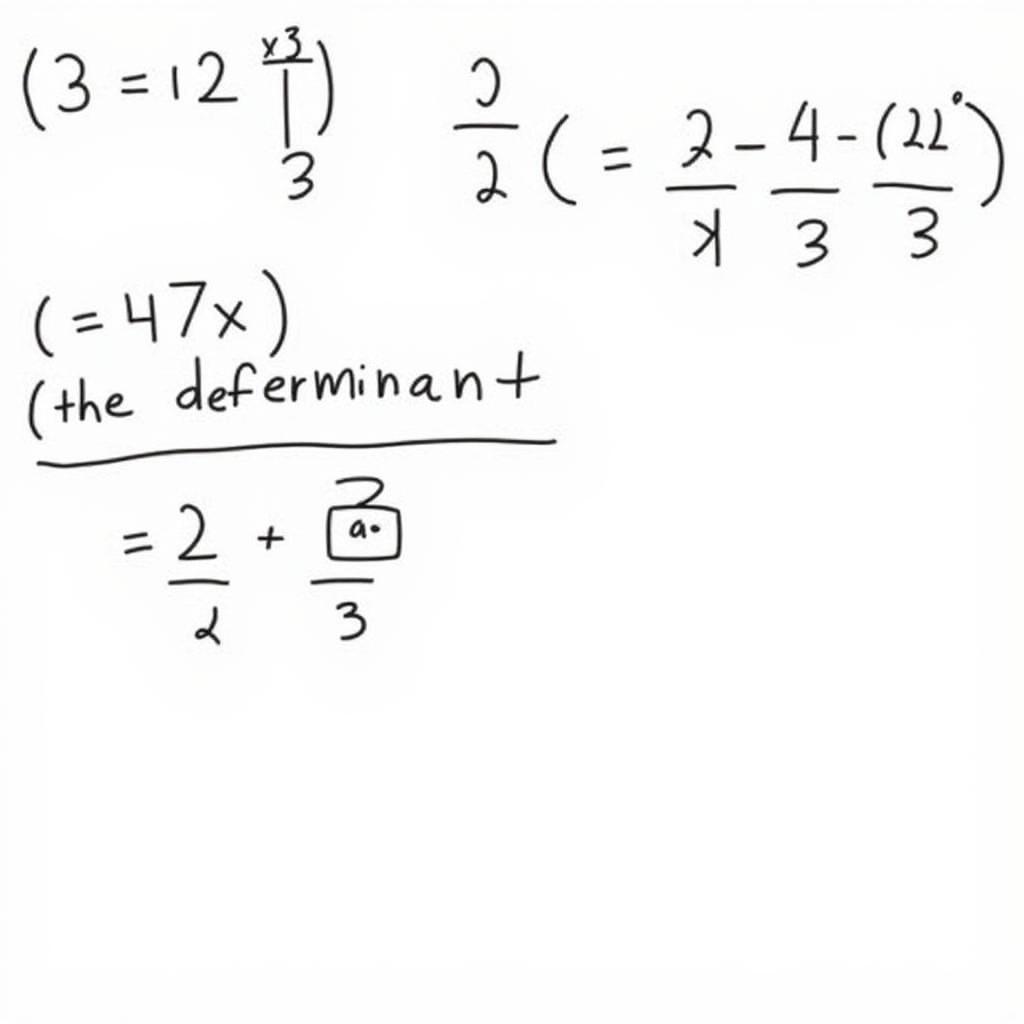 (3 = 12 x3/3)
2 ( = 2 - 4 - (22°)
3 3
( = 47x)
(the deferminant
= 2 + a.
2 3